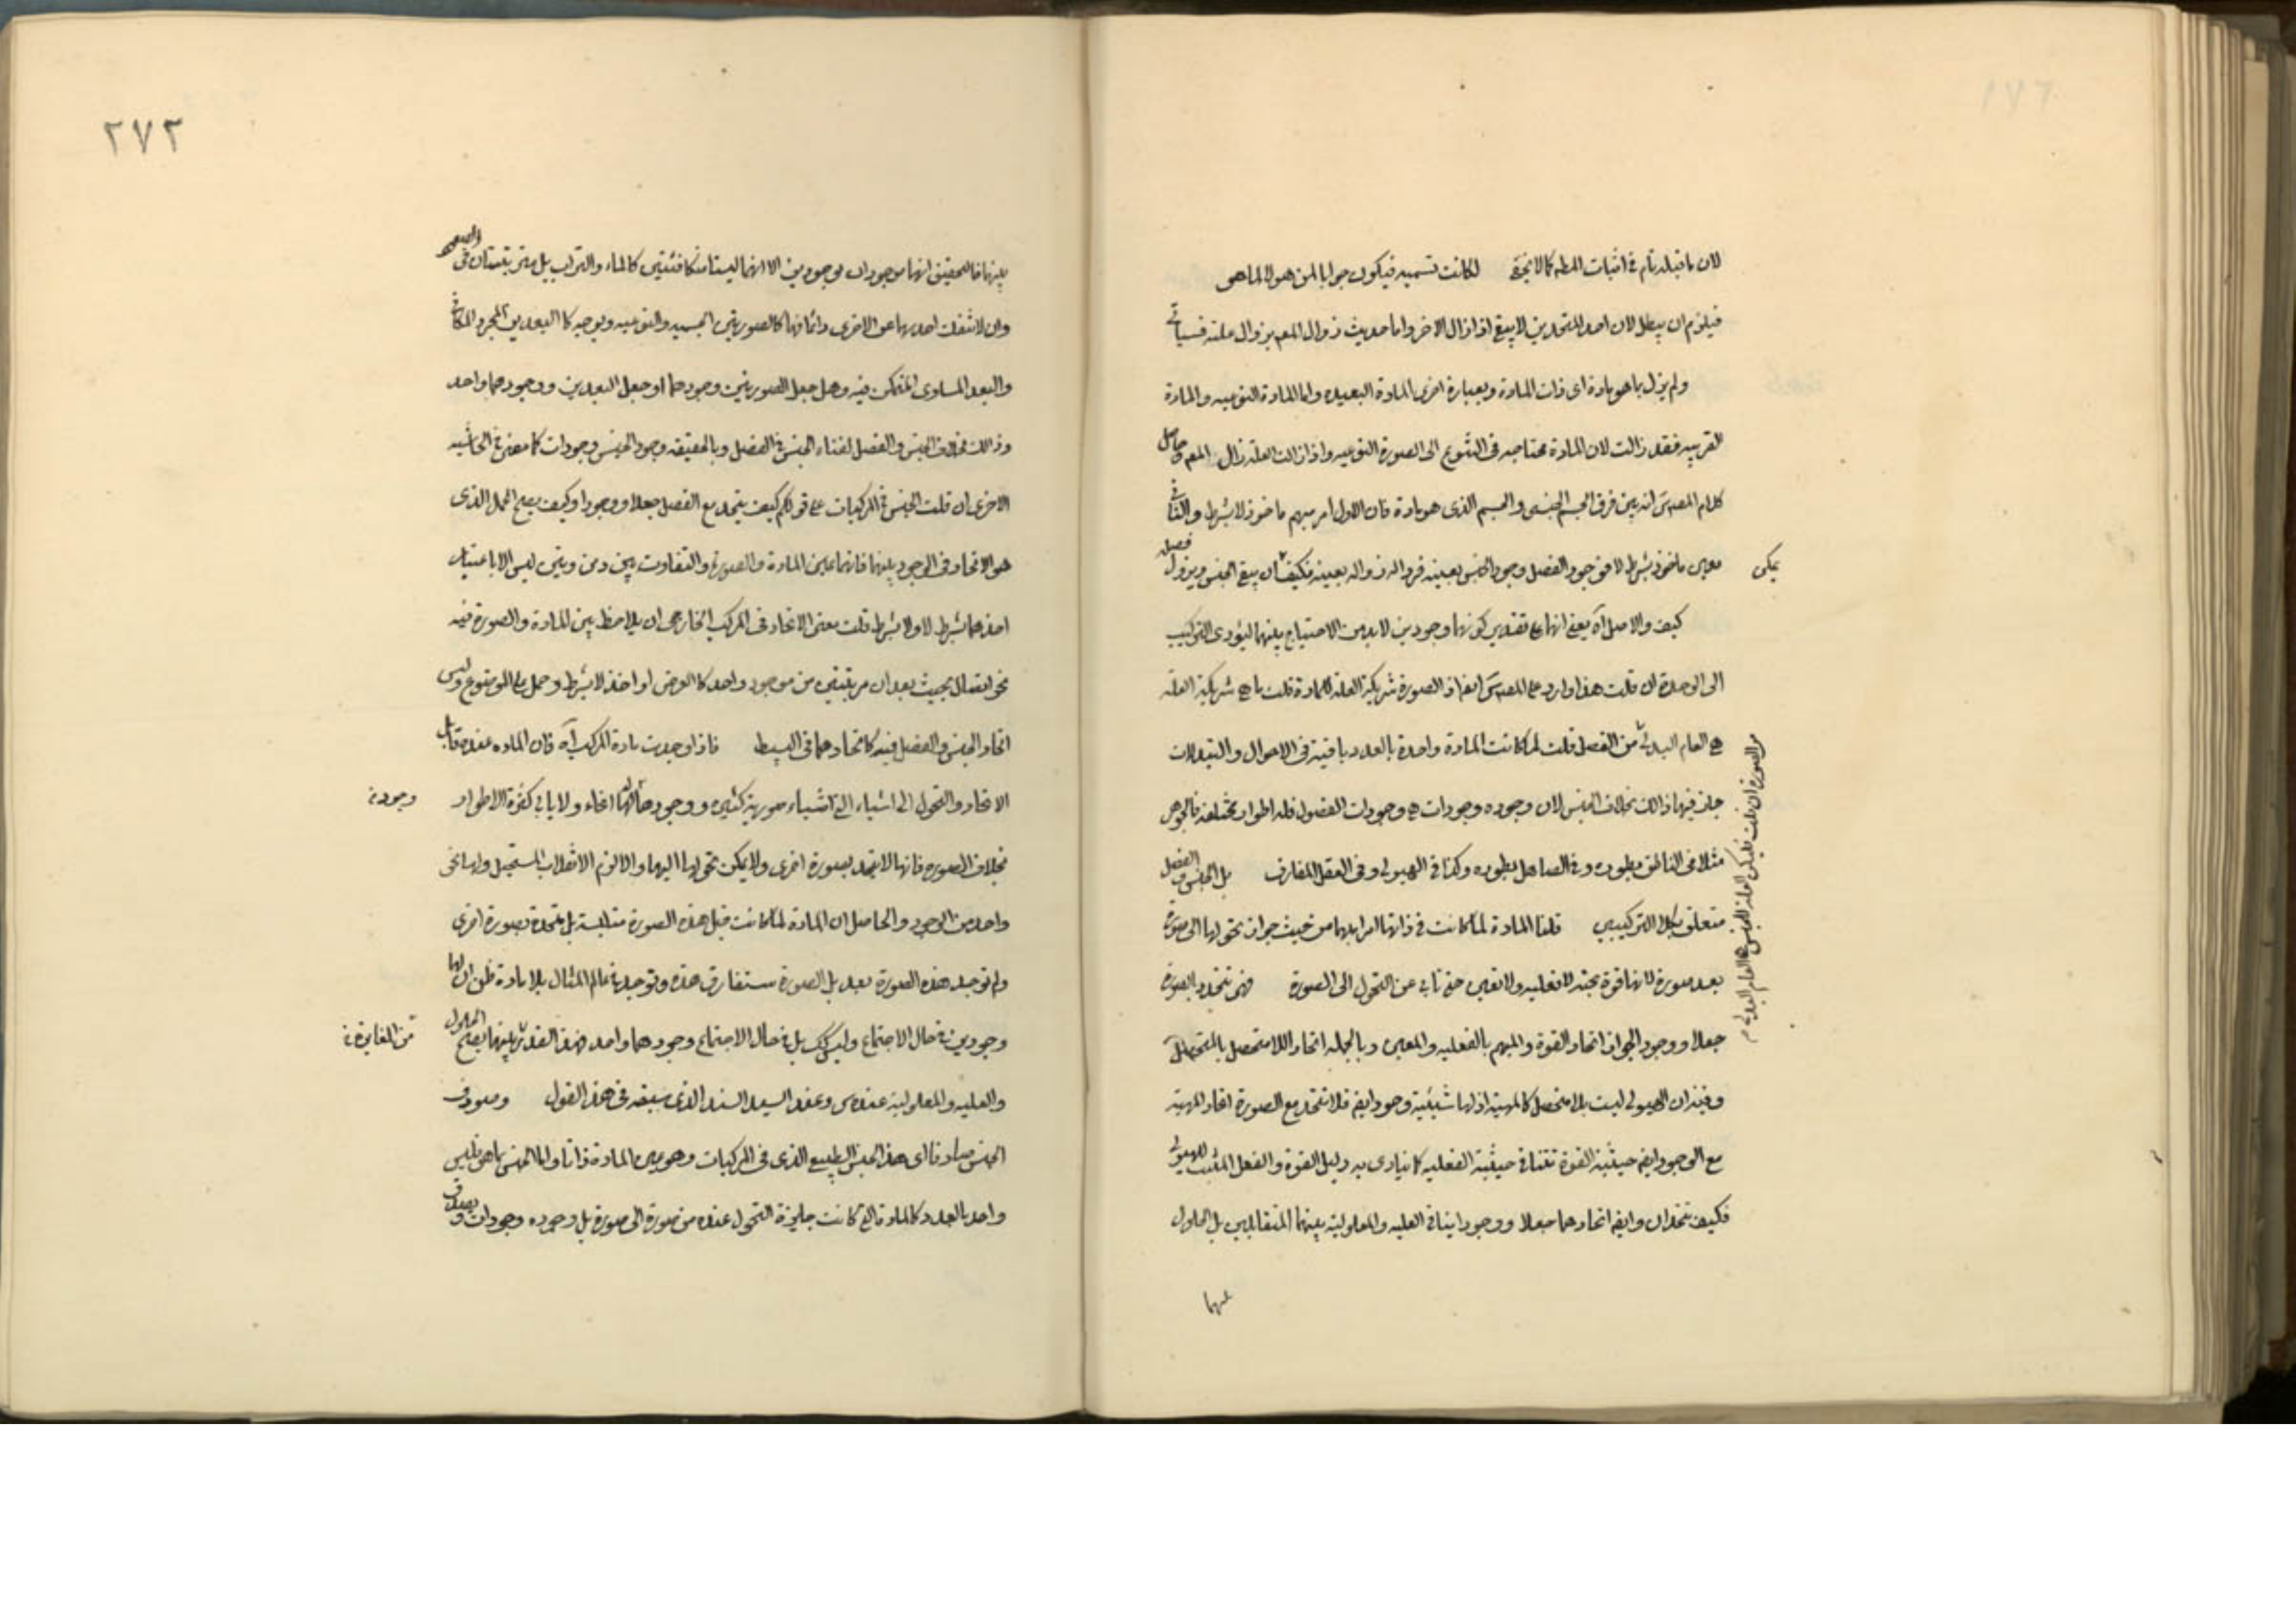 لان ما قبله تام فى اثبات المطلب كما لا يخفى لكانت تسميه فيكون جوابا لمن هو لا لما هو
فيلزم ان يبطل لان احد المتحدين لا يبقى اذا زال الاخر واما حديث زوال المعلول بزوال علته فسياتى
ولم يزل بما هو مادة اى ذات المادة وبعبارة اخرى المادة البعيده واما المادة النوعيه والمادة
القريبه فقد زالت لان المادة محتاجه فى التنوع الى الصورة النوعيه واذا زالت العلة زال المعم حاصل
كلام المصنف س انه بين فرق الجسم الجنسى والجسم الذى هو مادة فان الاول امر مبهم ماخوذ لا بشرط والثانى
معين ماخوذ بشرط لا فوجود الفصل وجود الجنس بعينه فزواله زواله بعينه فكيف يمكن ان يبقى الجنس ويزول فصله
كيف والاصل آه يعنى انهما على تقدير كونهما وجودين لابد من الاحتياج بينهما ليؤدى التركيب
الى الوحدة ان قلت هذا وارد على المصنف س ايضا اذ الصورة شريكة العلة للمادة قلت ما هى شريكة العلة
هى العام البدلى من الفصل قلت لما كانت المادة واحدة بالعدد باقية فى الاحوال والتبدلات
من الصورة ان قلت فليكن العلة للجنس هى العام البدلى م
جاز فيها ذالك بخلاف الجنس لان وجوده وجودات هى وجودات الفصول فله اطوار مختلفه فالجوهر
مثلا فى الناطق بطوره وفى الصاهل بطوره وكذا فى الهيولى وفى العقل المفارق بل الجنس والفصل
متعلق بكلا التركيبين قلنا المادة لما كانت فى ذاتها امرا مبهما من حيث جواز تحولها الى صورة
بعد صورة لانها قوة بحته لا فعليه ولا تعين حتى تابى عن التحول الى الصورة فهى تتحد بالصورة
جعلا ووجودا لجواز اتحاد القوة والمبهم بالفعليه والمعين وبالجمله اتحاد اللامتحصل بالمتحصل
وفيه ان الهيولى ليست بلا متحصل كالمهية اذ لها شيئية وجود ايضا فلا تتحد مع الصورة اتحاد المهية
مع الوجود ايضا حيثية القوة تنافى حيثية الفعليه كما ينادى به دليل القوة والفعل المثبت للهيولى
فكيف تتحدان وايضا اتحادهما جعلا ووجودا ينافى العليه والمعلولية بينهما المتقابلين بل الحلول
بينهما
٢٧٢
بينهما فالتحقيق انهما موجودان بوجودين الا انهما ليستا متكافئتين كالماء والتراب بل مترتبتان فى
وان لا تنفك احديهما عن الاخرى دائما فهما كالصورتين الجسميه والنوعيه وبوجه كالبعدين المجرد المكانى
والبعد المساوى المتمكن فيه وهل جعل الصورتين وجودهما او جعل البعدين ووجودهما واحد
وذالك بخلاف الجنس والفصل لفناء الجنس فى الفصل وبالحقيقه وجود الجنس وجودات كما مضى فى الحاشيه
الاخرى ان قلت الجنس فى المركبات على قولكم كيف يتحد مع الفصل جعلا ووجودا وكيف يصح الحمل الذى
هو الاتحاد فى الوجود بينهما فانهما عين المادة والصورة والتفاوت بين ذين وذين ليس الا باعتبار
اخذهما بشرط لا ولا بشرط قلت معنى الاتحاد فى المركب الخارجى ان يلاحظ بين المادة والصورة فيه
نحو اتصال بحيث يعدان مرتبتين من موجود واحد كالعرض اذا اخذ لا بشرط وحمل على الموضوع وليس
اتحاد الجنس والفصل فيه كاتحادهما فى البسيط فاذا وجدت مادة المركب آه فان الماده عنده قابل
الاتحاد والتحول الى اشياء اى اشياء صورية كثيره ووجودها انحاء ولا يابى كثرة الاطوار وجوده
بخلاف الصوره فانها لا تتحد بصورة اخرى ولا يمكن تحولها اليها والا لزم الانقلاب المستحيل ولها نحو
واحد من الوجود والحاصل ان المادة لما كانت قبل هذه الصورة متلبسة بل متحدة بصورة اخرى
ولم توجد هذه الصورة بعد بل الصورة ستفارق هذه وتوجد فى عالم المثال بلا مادة ظن ان لهما
وجودين فى حال الاجتماع وليس كك بل فى حال الاجتماع وجودهما واحد فهذا القدر من المغايرة بينهما يصحح الحلول
والعليه والمعلولية عنده س وعند السيد السند الذى سبقه فى هذا القول ومعروف
الجنس صادقا اى هذا الجنس الطبيعى الذى فى المركبات وهو عين المادة ذاتا واما الجنس بما هو فليس
واحدا بالعدد كالمادة التى كانت جايزة التحول عنده من صورة الى صورة بل وجوده وجودات ويصدق